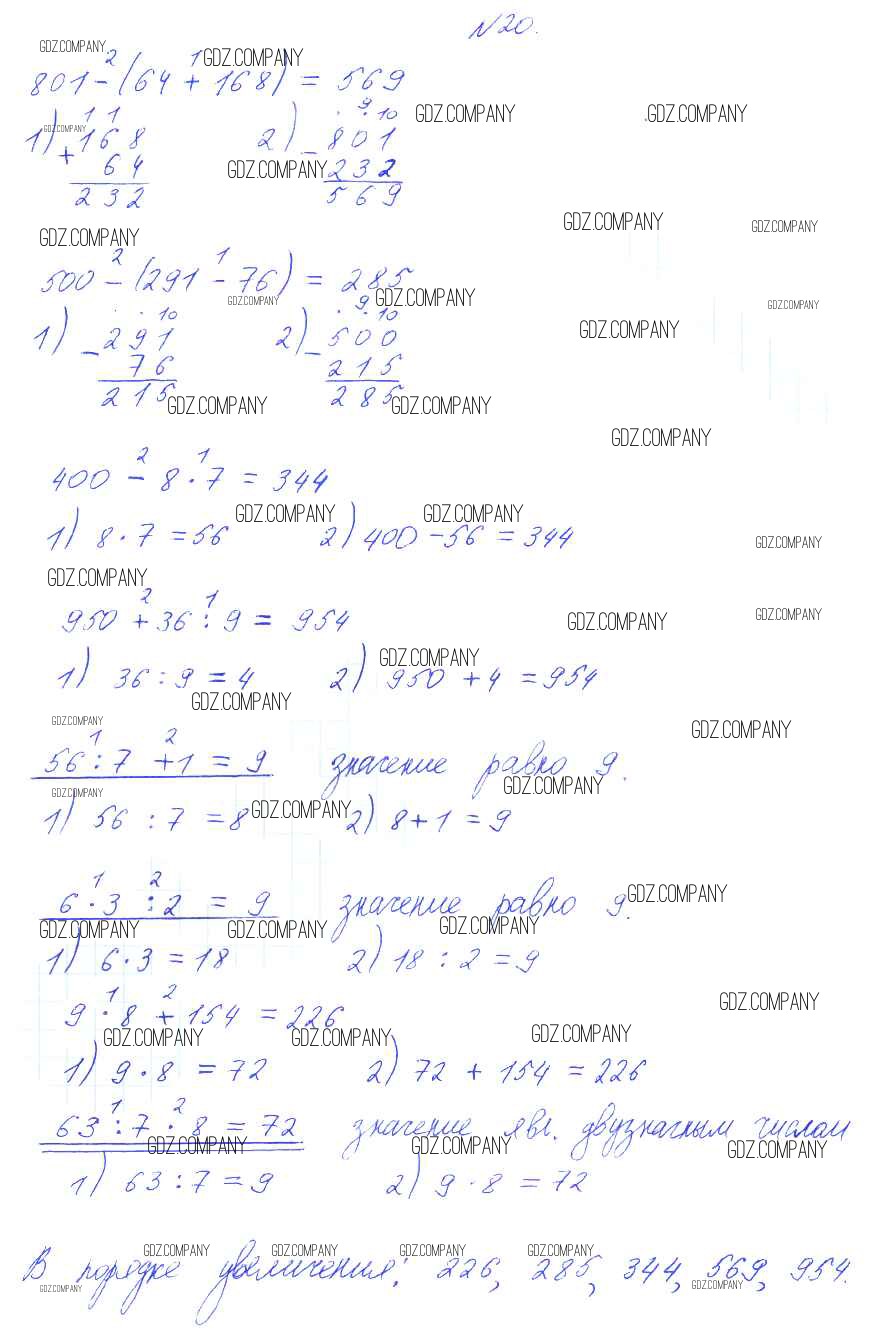 N20.
GDZ.COMPANY
2 1 GDZ.COMPANY
801 - (64 + 168) = 569
GDZ.COMPANY GDZ.COMPANY
1 1 9 10
1) GDZ.COMPANY 168 2) - 801
+ 64 GDZ.COMPANY 232
232 569
GDZ.COMPANY GDZ.COMPANY
GDZ.COMPANY
2 1
500 - (291 - 76) = 285
GDZ.COMPANY GDZ.COMPANY GDZ.COMPANY
10 9 10
1) - 291 2) - 500 GDZ.COMPANY
76 215
215 285
GDZ.COMPANY GDZ.COMPANY
GDZ.COMPANY
2 1
400 - 8 · 7 = 344
GDZ.COMPANY GDZ.COMPANY
1) 8 · 7 = 56 2) 400 - 56 = 344 GDZ.COMPANY
GDZ.COMPANY
2 1
950 + 36 : 9 = 954 GDZ.COMPANY GDZ.COMPANY
GDZ.COMPANY
1) 36 : 9 = 4 2) 950 + 4 = 954
GDZ.COMPANY
GDZ.COMPANY GDZ.COMPANY
1 2
56 : 7 + 1 = 9 значение равно 9.
GDZ.COMPANY GDZ.COMPANY
1) 56 : 7 = 8 GDZ.COMPANY 2) 8 + 1 = 9
1 2
6 · 3 : 2 = 9 значение равно 9. GDZ.COMPANY
GDZ.COMPANY GDZ.COMPANY GDZ.COMPANY
1) 6 · 3 = 18 2) 18 : 2 = 9
1 2 GDZ.COMPANY
9 · 8 + 154 = 226
GDZ.COMPANY GDZ.COMPANY GDZ.COMPANY
1) 9 · 8 = 72 2) 72 + 154 = 226
1 2
63 : 7 · 8 = 72 значение явл. двузначным числом
GDZ.COMPANY GDZ.COMPANY GDZ.COMPANY
1) 63 : 7 = 9 2) 9 · 8 = 72
GDZ.COMPANY GDZ.COMPANY GDZ.COMPANY GDZ.COMPANY
В порядке увеличения: 226, 285, 344, 569, 954.
GDZ.COMPANY GDZ.COMPANY